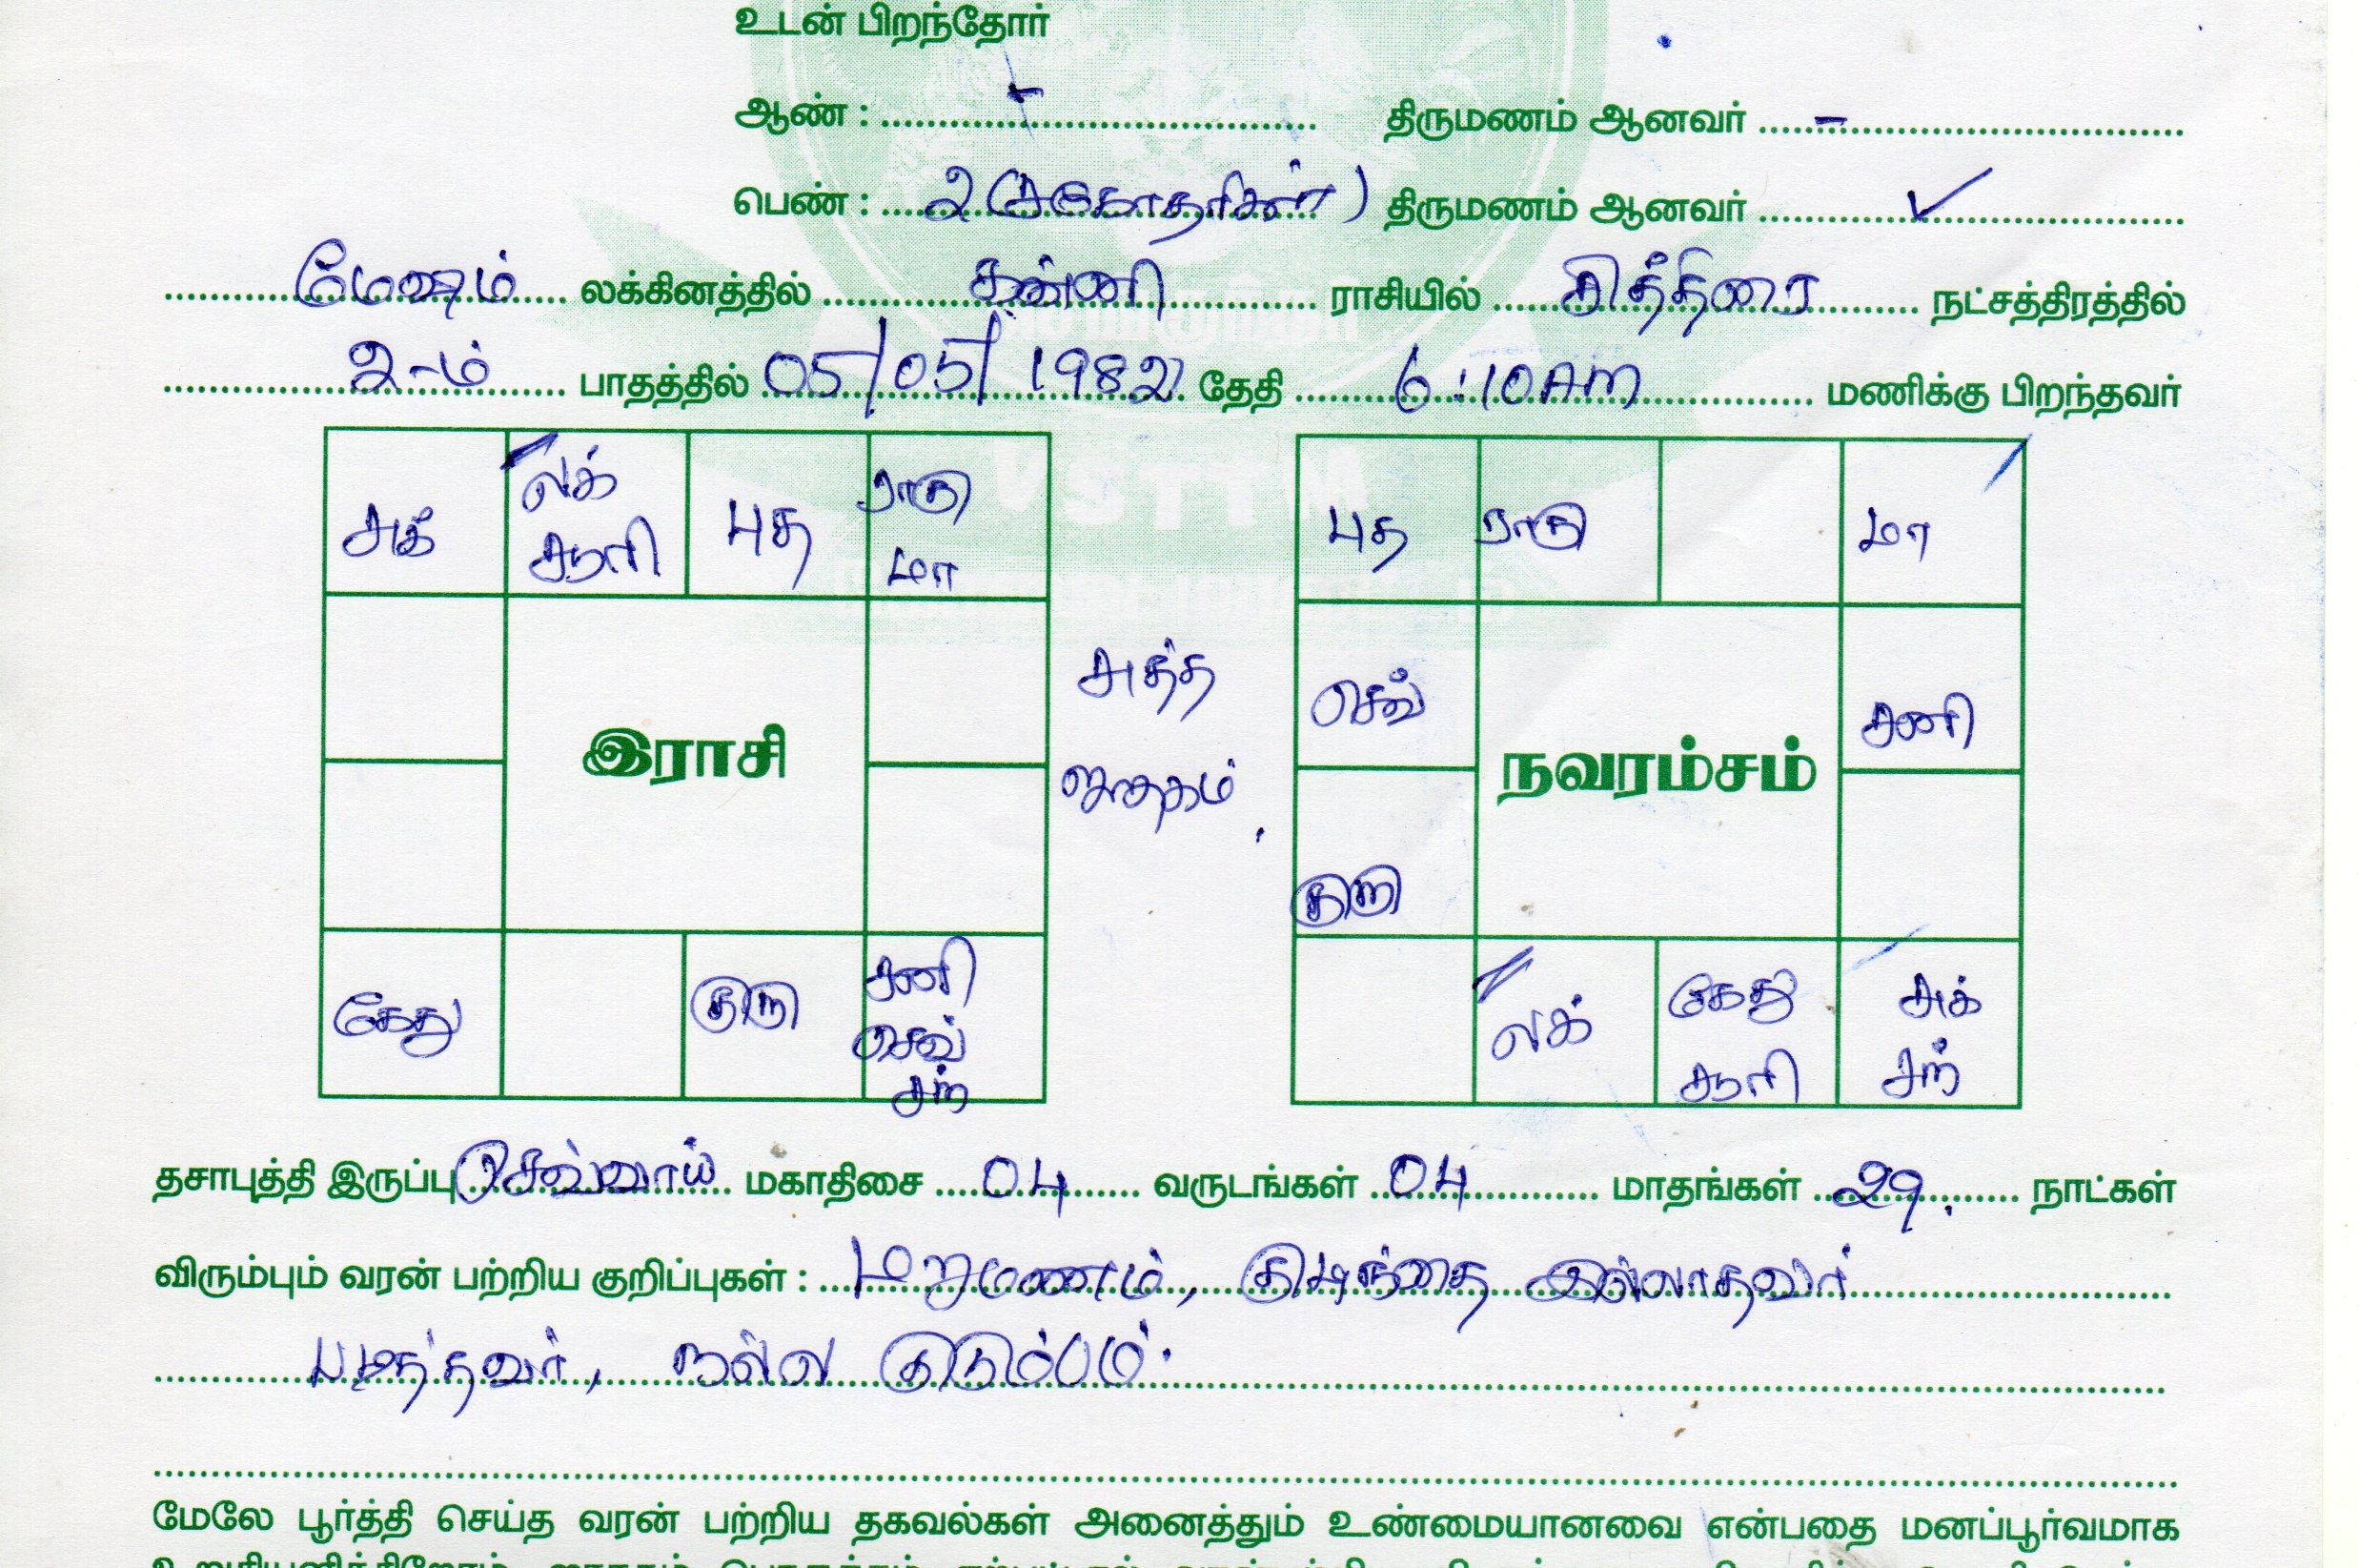 உடன் பிறந்தோர்
ஆண் : - திருமணம் ஆனவர் -
பெண் : 2 (சகோதரிகள்) திருமணம் ஆனவர் ✓
மேஷம் லக்கினத்தில் கன்னி ராசியில் சித்திரை நட்சத்திரத்தில்
2-ம் பாதத்தில் 05/05/1982 தேதி 6:10AM மணிக்கு பிறந்தவர்
சுக் லக் சூரி புத ராகு மா
புத ராகு மா
அசுத்த ஜாதகம்
செவ் சனி
இராசி
நவரம்சம்
குரு
கேது குரு சனி செவ் சந்
லக் கேது சூரி சுக் சந்
தசாபுத்தி இருப்பு செவ்வாய் மகாதிசை 04 வருடங்கள் 04 மாதங்கள் 29. நாட்கள்
விரும்பும் வரன் பற்றிய குறிப்புகள் : மறுமணம், குழந்தை இல்லாதவர்
படித்தவர், நல்ல குடும்பம்.
மேலே பூர்த்தி செய்த வரன் பற்றிய தகவல்கள் அனைத்தும் உண்மையானவை என்பதை மனப்பூர்வமாக